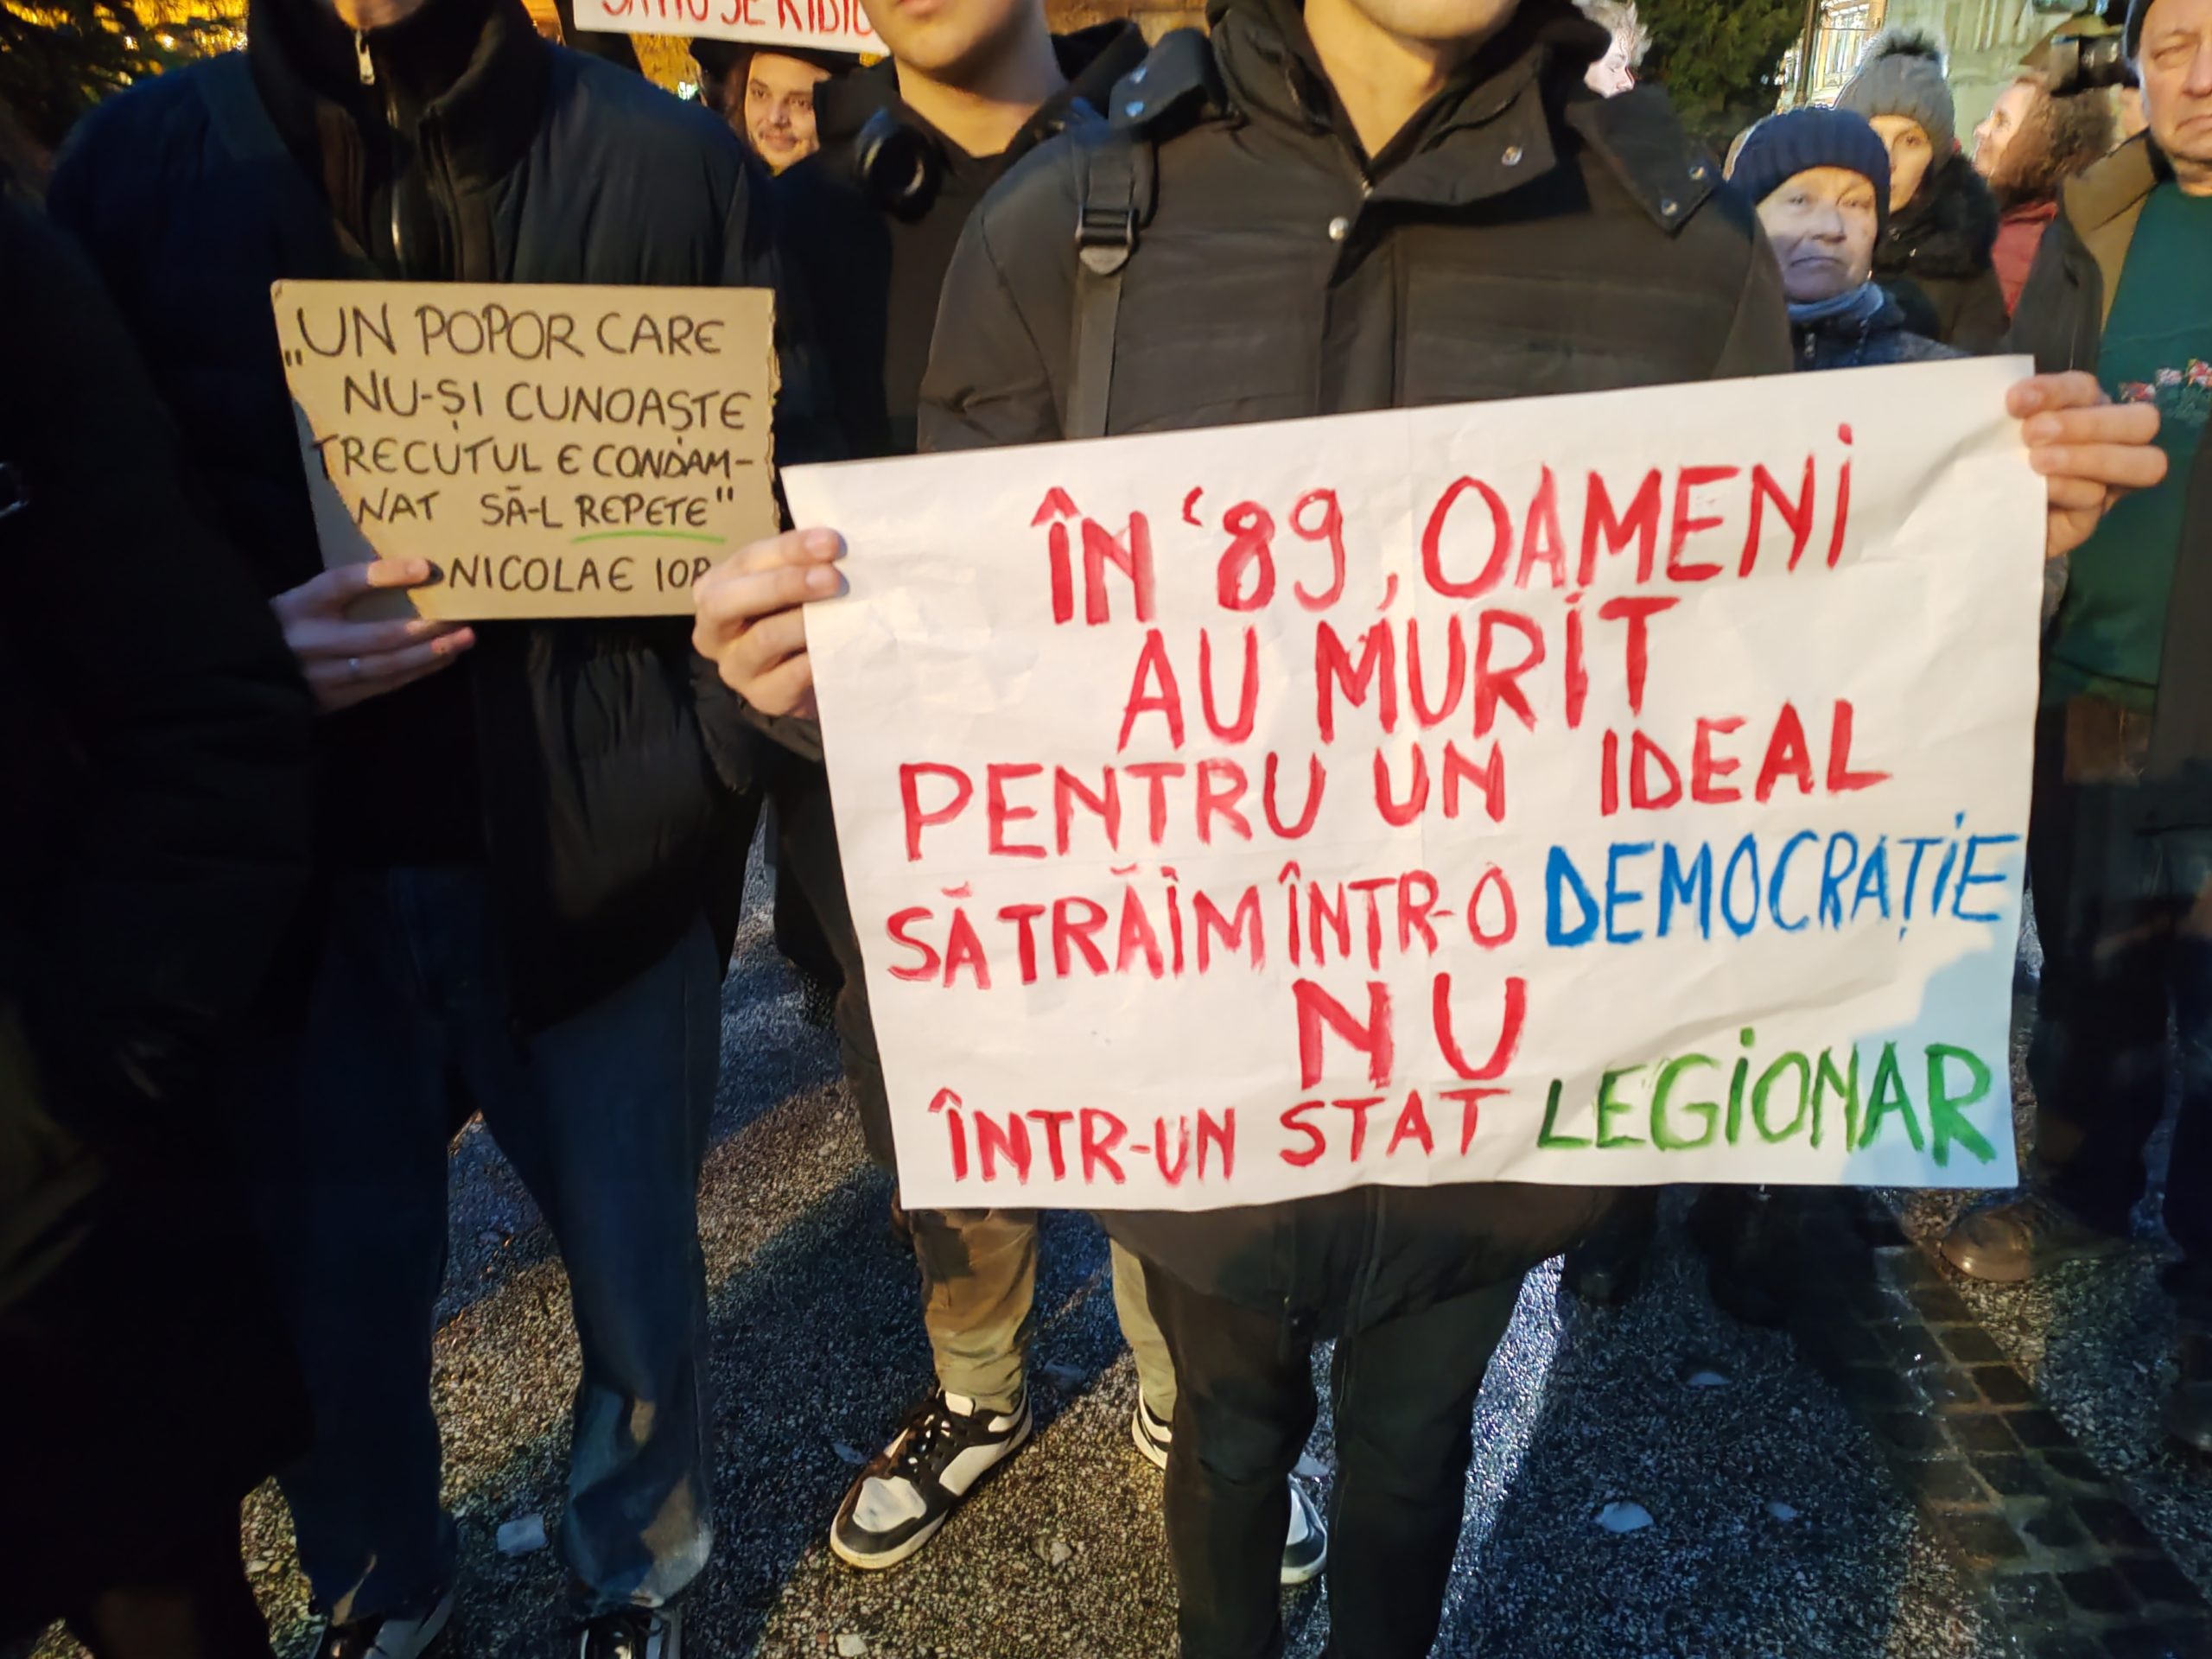 „UN POPOR CARE
NU-ȘI CUNOAȘTE
TRECUTUL E CONDAM-
NAT SĂ-L REPETE"
NICOLAE
ÎN '89, OAMENI
AU MURIT
PENTRU UN IDEAL
SĂ TRĂIM ÎNTR-O DEMOCRAȚIE
NU
ÎNTR-UN STAT LEGIONAR